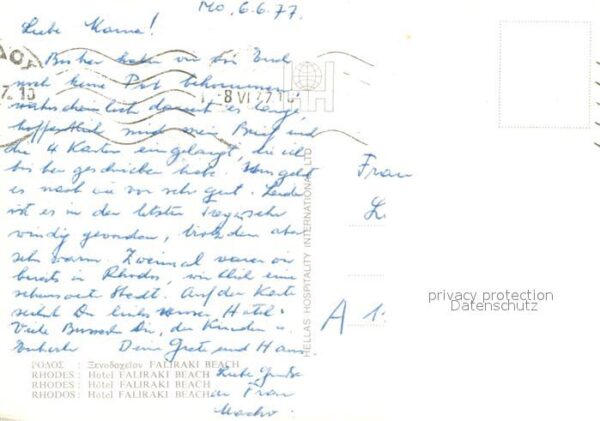 Mo, 6.6.77.
Liebe Mama!
Bisher haben wir von Euch
noch keine Post bekommen,
wahrscheinlich dauert es lange,
hoffentlich sind mein Brief und
die 4 Karten eingelangt, die ich
bisher geschrieben habe. Uns geht
es nach wie vor sehr gut. Leider
ist es in den letzten Tagen sehr
windig geworden, trotzdem aber
sehr warm. Zweimal waren wir
bereits in Rhodos, wirklich eine
sehenswerte Stadt. Auf der Karte
siehst Du links unser Hotel.
Viele Bussi Dir, den Kindern u.
Deine Grete und Hans
Liebe Grüße
an Frau
Frau
L
A 1
8 VI 77
HH
HELLAS HOSPITALITY INTERNATIONAL LTD
privacy protection
Datenschutz
ΡΟΔΟΣ : Ξενοδοχείον FALIRAKI BEACH
RHODES : Hotel FALIRAKI BEACH
RHODES : Hôtel FALIRAKI BEACH
RHODOS : Hotel FALIRAKI BEACH